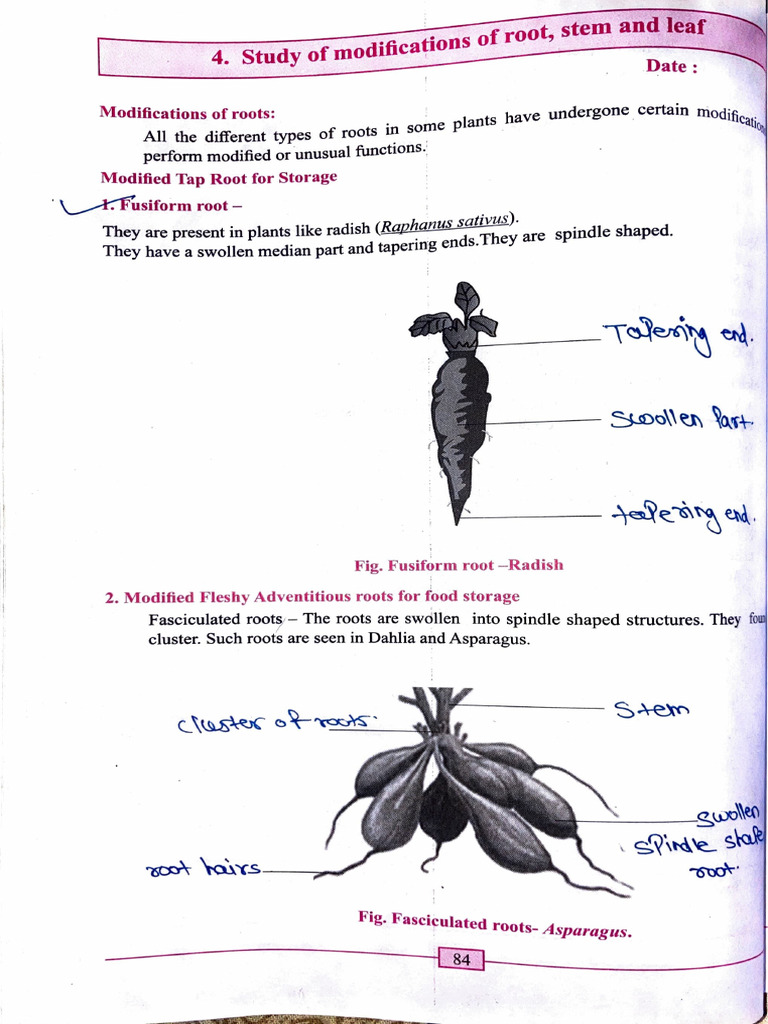 4. Study of modifications of root, stem and leaf
Date :
Modifications of roots:
All the different types of roots in some plants have undergone certain
perform modified or unusual functions.
Modified Tap Root for Storage
1. Fusiform root –
They are present in plants like radish (Raphanus sativus).
They have a swollen median part and tapering ends.They are spindle shaped.
Tapering end.
Swollen Part.
tapering end.
Fig. Fusiform root –Radish
2. Modified Fleshy Adventitious roots for food storage
Fasciculated roots – The roots are swollen into spindle shaped structures. They
cluster. Such roots are seen in Dahlia and Asparagus.
cluster of roots.
Stem
Swollen
Spindle
root.
root hairs
Fig. Fasciculated roots- Asparagus.
84